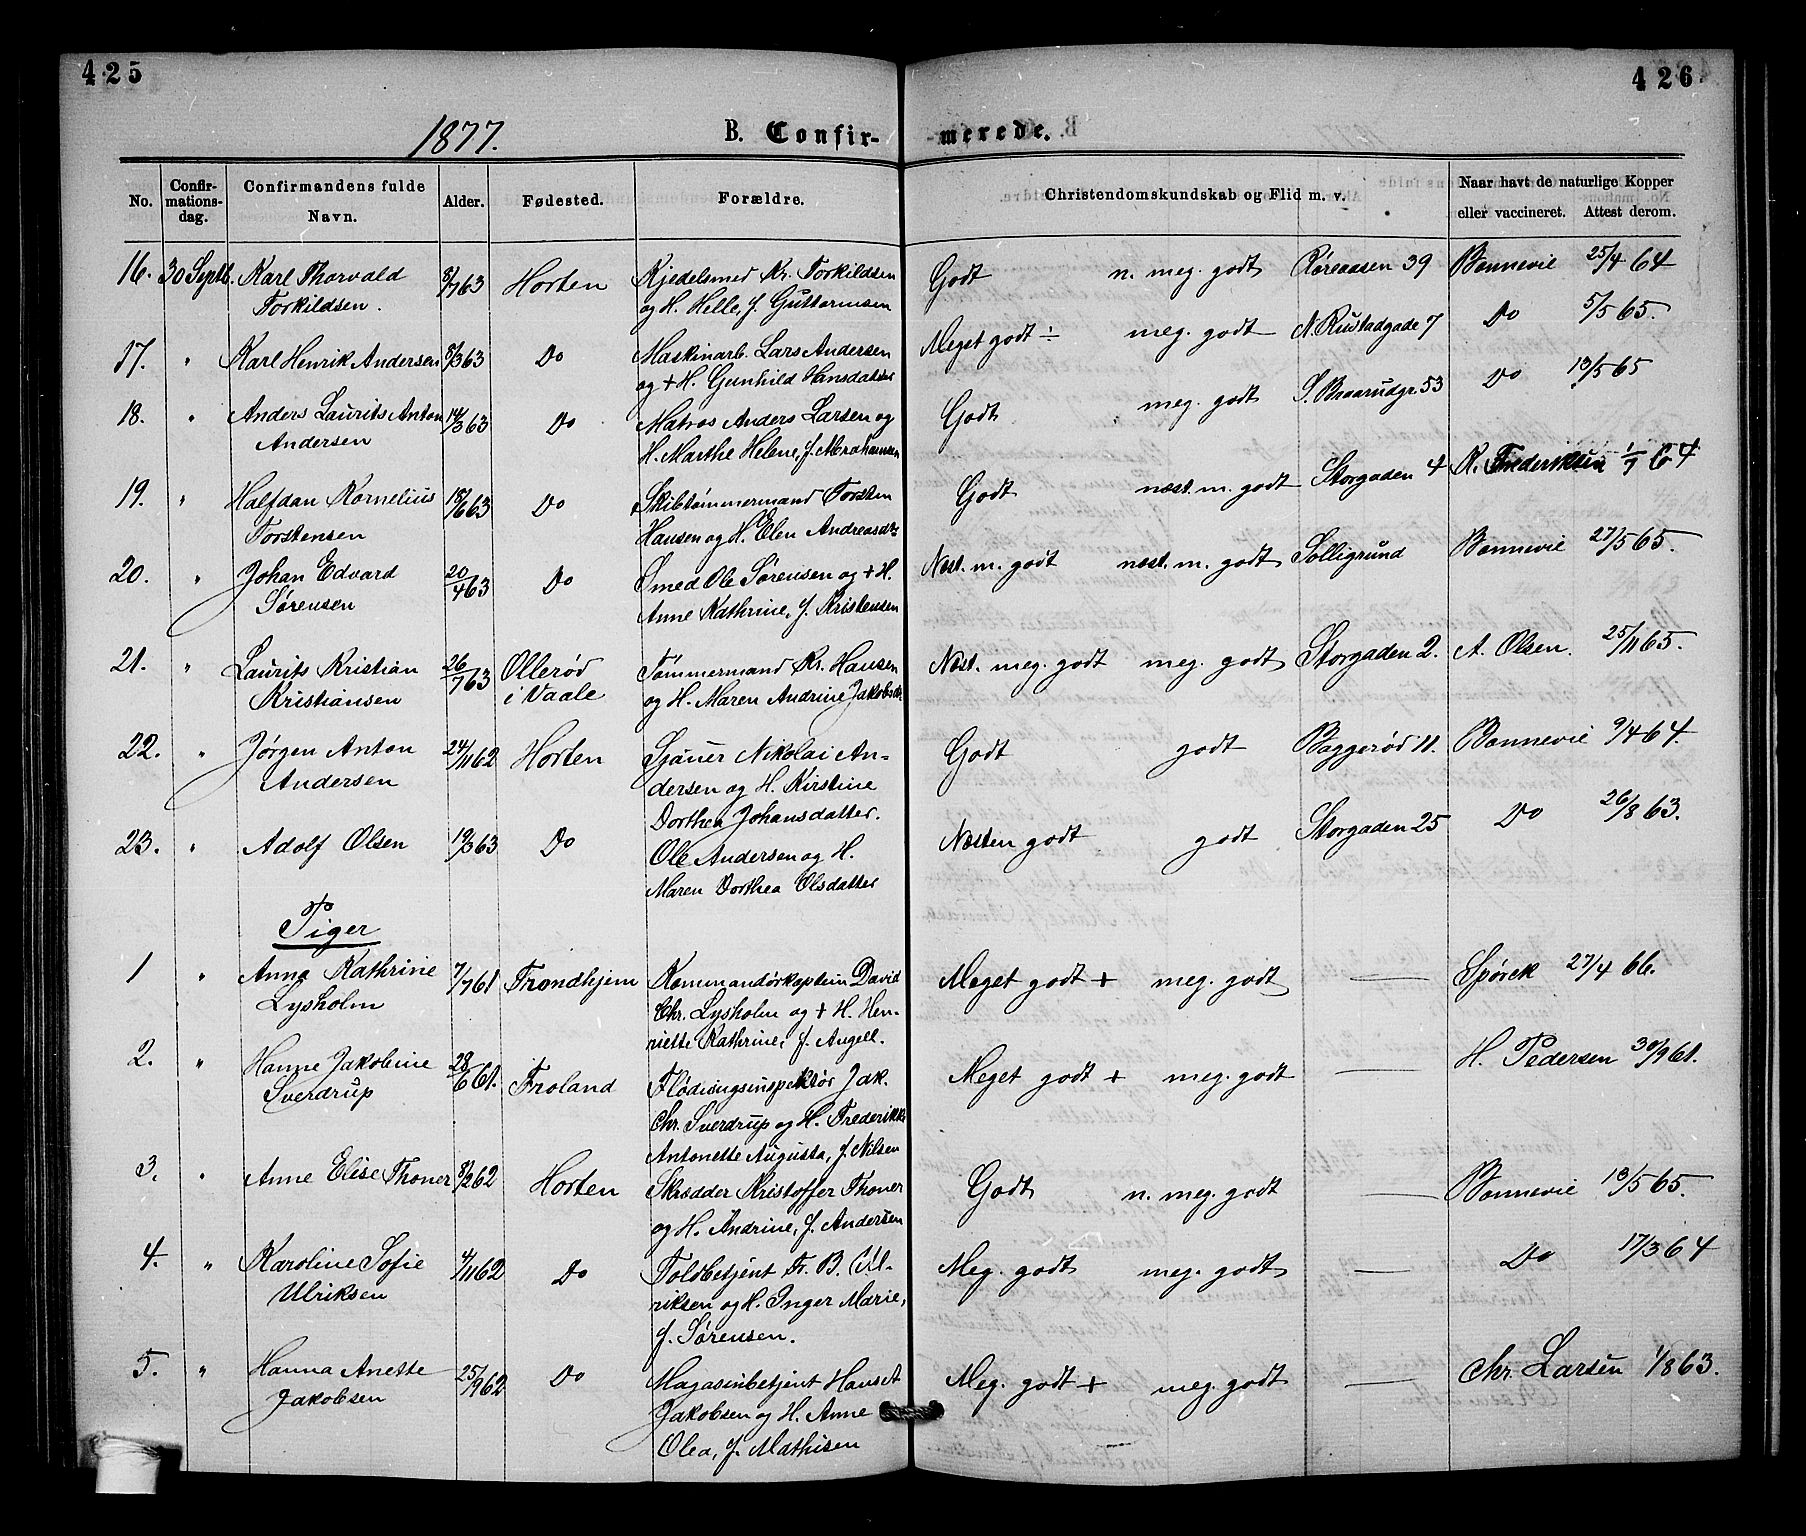 425
426
1877.
B. Confir-
merede.
No.
Confir-
mations-
dag.
Confirmandens fulde
Navn.
Alder.
Fødested.
Forældre.
Christendomskundskab og Flid m. v.
Naar havt de naturlige Kopper
eller vaccineret. Attest derom.
16. 30 Septb. Karl Thorvald 8/7 63 Horten Kjedelsmed Kr. Torkildsen Godt n. meg. godt Røreaasen 39 Bonnevie 25/4 64
Torkildsen. og H. Helle, f. Guttormsen
17. " Karl Henrik Andersen 8/3 63 Do Maskinarb. Lars Andersen Meget godt ÷ meg. godt N. Rustadgade 7 Do 5/5 65.
og + H. Gunhild Hansdatter
18. " Anders Laurits Anton 14/3 63 Do Matros Anders Larsen og Godt meg. godt S. Braarudgr. 53 Do 13/5 65
Andersen H. Marthe Helene, f. Abrahamsen
19. " Halfdan Kornelius 18/6 63 Do Skibtømmermand Torsten Godt næst. m. godt Storgaden 4 K. Frederiksen 1/7 64
Torstensen Hansen og H. Elen Andreasdtr
20. " Johan Edvard 20/4 63 Do Smed Ole Sørensen og + H. Næst. m. godt næst. m. godt Solligrund Bonnevie 27/5 65.
Sørensen Anne Kathrine, f. Kristensen
21. " Laurits Kristian 26/7 63 Ollerød Tømmermand Kr. Hansen Næst. meg. godt meg. godt Storgaden 2. A. Olsen. 25/11 65.
Kristiansen i Vaale og H. Maren Andrine Jakobsdtr
22. " Jørgen Anton 24/11 62 Horten Sjauer Nikolai An- Godt godt Baggerød 11. Bonnevie 9/4 64.
Andersen dersen og H. Kirstine
Dorthea Johansdatter.
23. " Adolf Olsen 19/3 63 Do Ole Andersen og H. Næsten godt godt Storgaden 25 Do 26/8 63.
Maren Dorthea Olsdatter
Piger
1 " Anna Kathrine 7/7 61 Trondhjem Kommandørkaptein David Meget godt + meg. godt — Spørck 27/4 66.
Lysholm Chr. Lysholm og + H. Hen-
riette Kathrine, f. Angell.
2. " Hanne Jakobine 28/6 61. Froland Flødningsinspektør Jak. Meget godt + meg. godt — H. Pedersen 30/9 61.
Sverdrup Chr. Sverdrup og H. Frederikke
Antonette Augusta, f. Nilsen
3. " Anne Elise Thoner 8/2 62 Horten Skrædder Kristoffer Thoner Godt n. meg. godt — Bonnevie 13/5 65.
og H. Andrine, f. Andersen
4. " Karoline Sofie 4/11 62 Do Toldbetjent Fr. B. Ul- Meg. godt meg. godt — Do 17/3 64
Ulriksen riksen og H. Inger Marie,
f. Sørensen.
5. " Hanna Anette 25/9 62 Do Magasinbetjent Hans A Meg. godt + meg. godt — Chr. Larsen 1/8 63.
Jakobsen Jakobsen og H. Anne
Olea, f. Mathisen